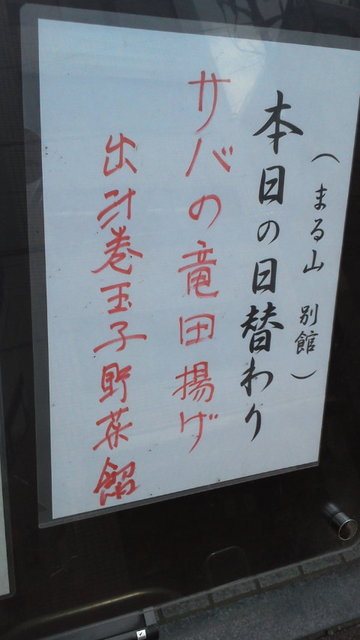 (まる山 別館)
本日の日替わり
サバの竜田揚げ
出汁巻玉子野菜餡